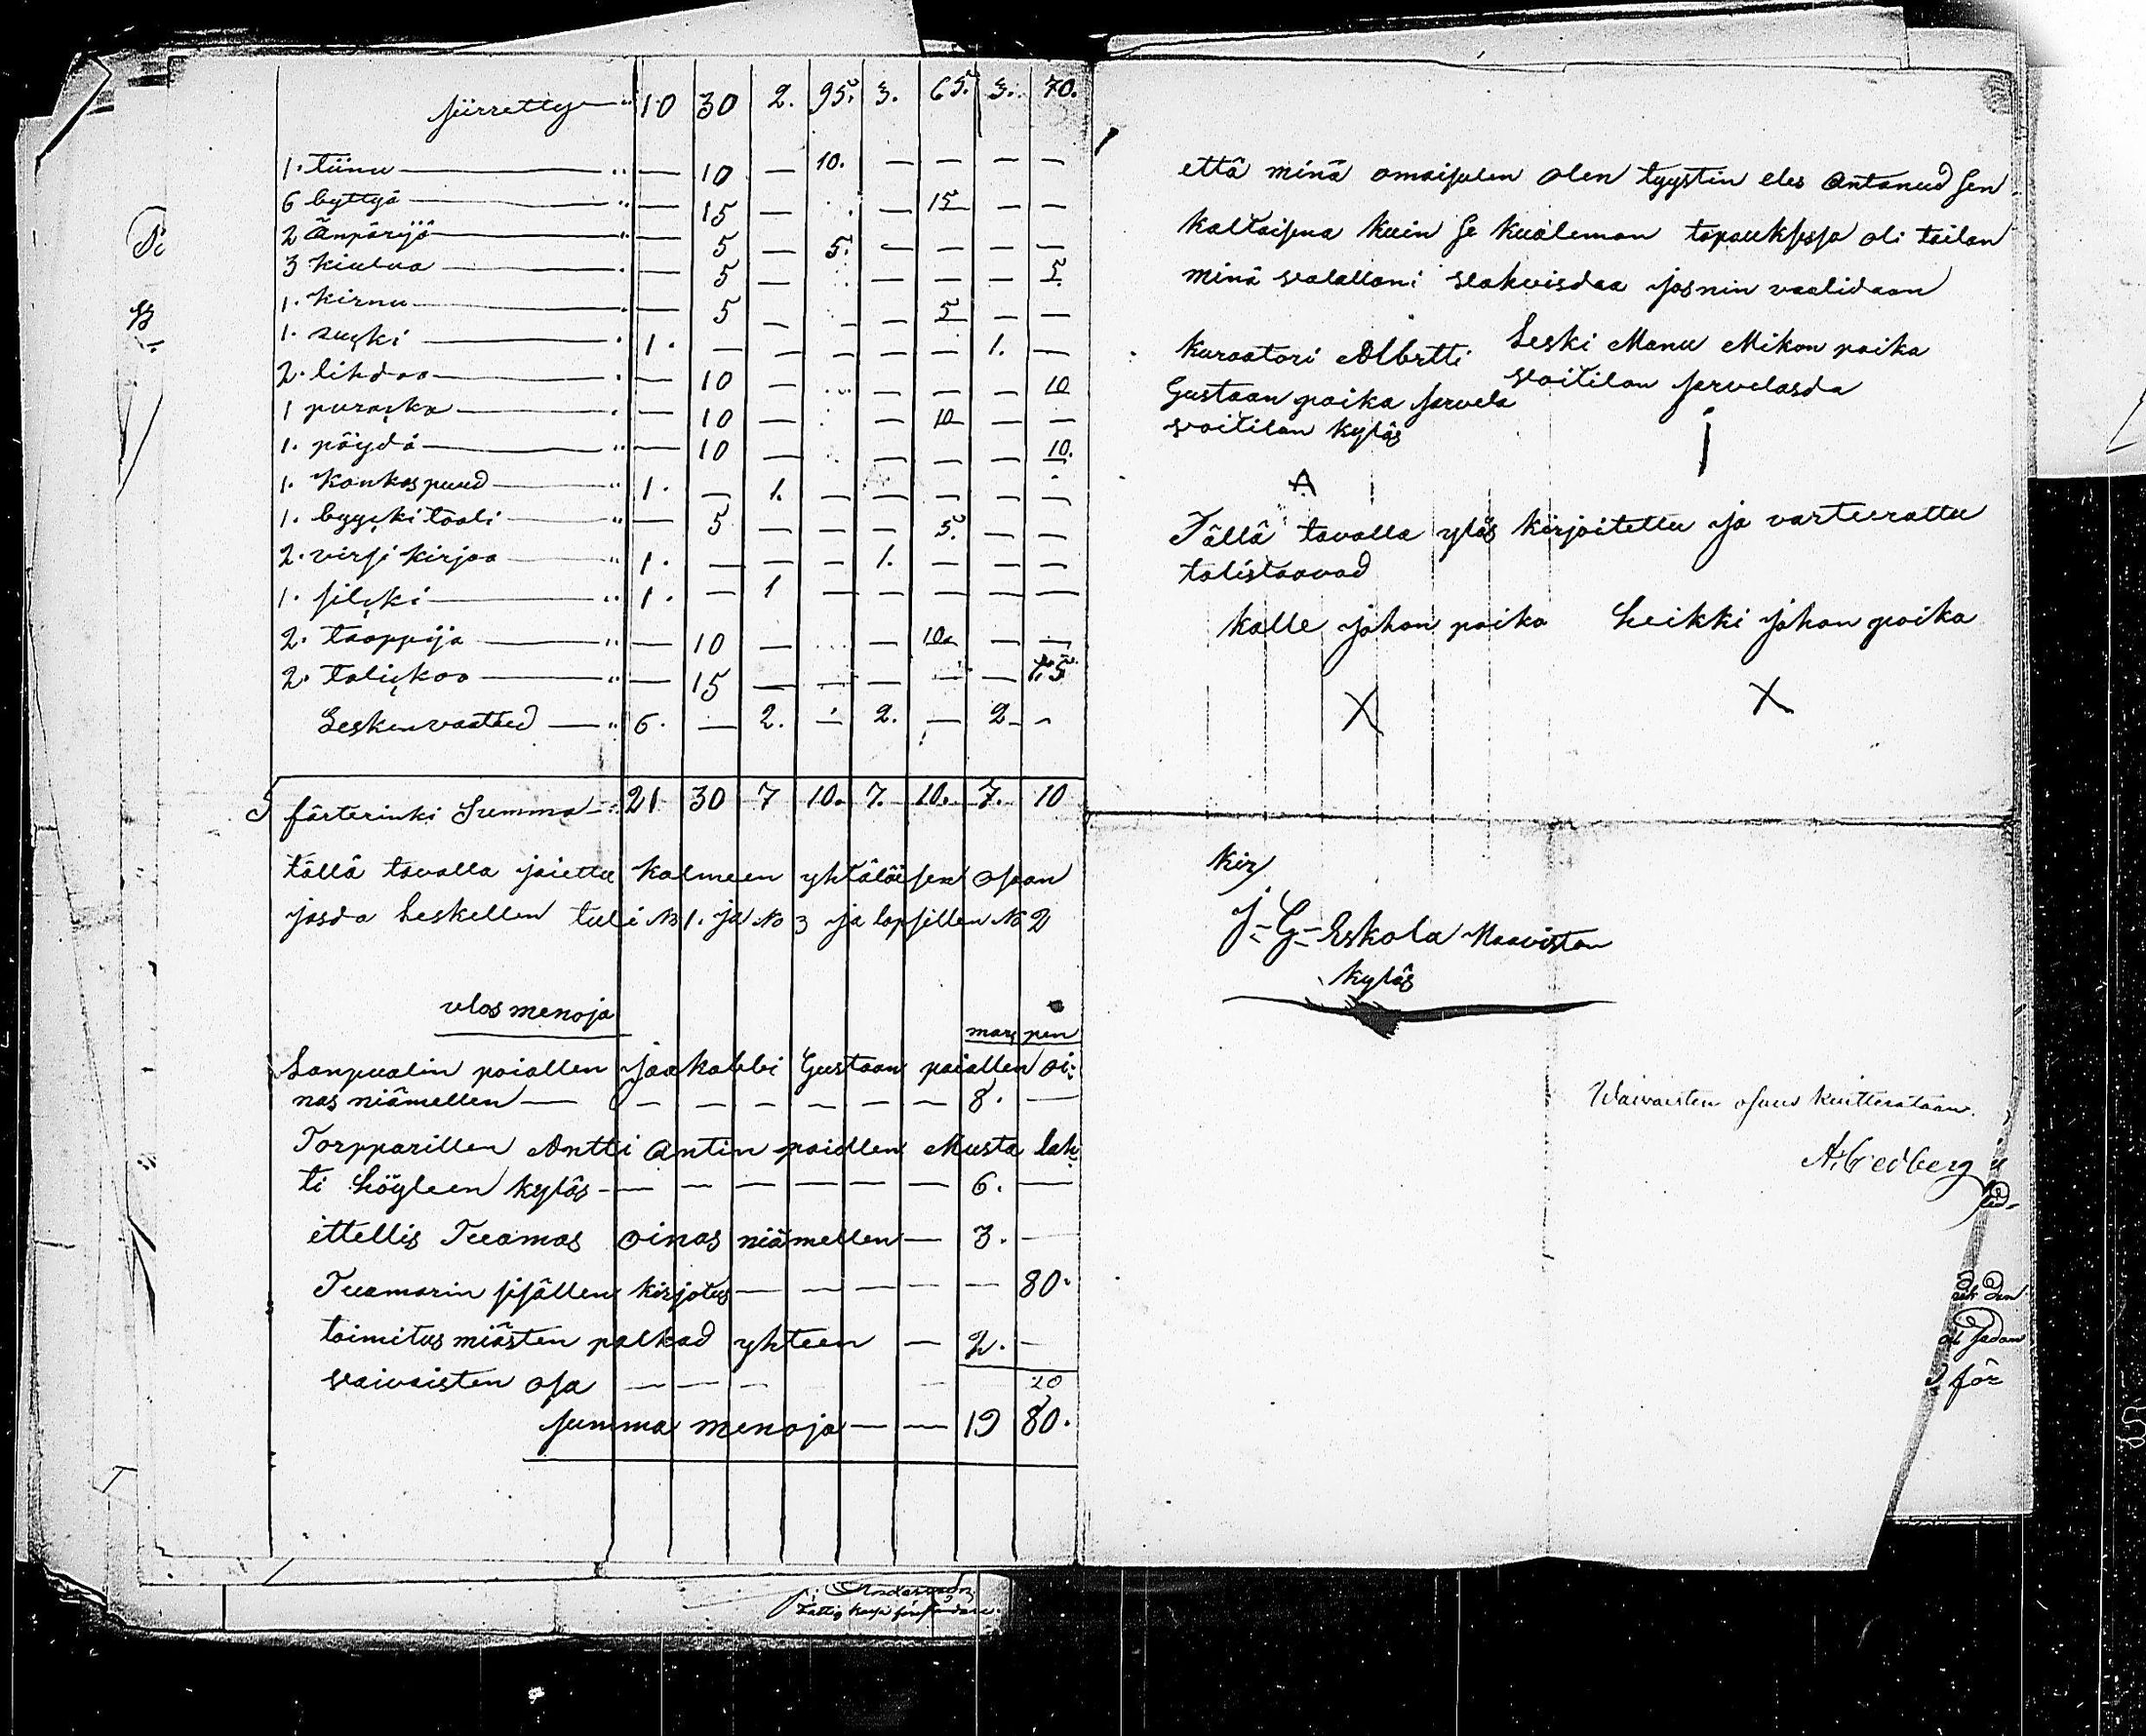 siirretty " 10 30 2. 95. 3. 65. 3. 70.
1. tiinu " — 10 — 10. — — — —
6 byttyä " — 15 — — 15 — —
2 Ánpärijä " — 5 — 5. — — — —
3 kiulua — 5 — — — — 5
1. kirnu — 5 — — — 5 — —
1. 1. — — — — — 1. —
2. lihdoo — 10 — — — — 10
1 puraska — 10 — — 10 — —
1. pöydä " — 10 — — — — 10.
1. Kankas puud " 1. — 1. — — — — —
1. byyski tooli " — 5 — — — 5. — —
2. virsi kirjaa " 1. — — — 1. — — —
1. silyki " 1. — 1 — — — — —
2. taoppija " — 10 — — 10. — —
2. talickoo " — 15 — — — — — 15
Leskenvaatted " 6. — 2. — 2. — 2 —
färterinki Summa " 21 30 7 10. 7. 10. 7. 10
tällä tavalla jaiettu kolmeen yhtäläisen osaan
josda Leskellen tuli No 1. ja No 3 ja lapsillen No 2
vlos menoja
mar pen
Lanpualin poiallen Jaakobbi Gustaan poiallen oi=
nas niämellen — — — — — — — 8. —
Torpparillen Antti Antin poiallen Musta lah
ti höyleen kyläs — — — — — — 6. —
ittellis Tuamas oinas niämellen — 3. —
Tuamarin sisällen kirjotus — — — — — 80.
toimitus miästen palkad yhteen — 2. —
vaivaisten osa — — — — 20
summa menoja — — 19 80.
että minä omaisulen olen tyystin eles Antanud sen
kaltaisena kuin se kualeman tapauksessa oli tailan
minä valallani vahvisdaa jos nin vaalidaan
Kuraatori Albrtti Leski Manu Mikon poika
Gustaan poika Jarvela voitilan Jarvelasda
voitilan kyläs
A
Tällä tavalla ylös kirjoitettu ja varteerattu
talistaavad
Kalle Johan poika Heikki Johan poika
X X
Kir
J-G-Eskola Naavistan
kyläs
Waivaisten osuus kvitterataan.
A. Cedberg
Andersson
för